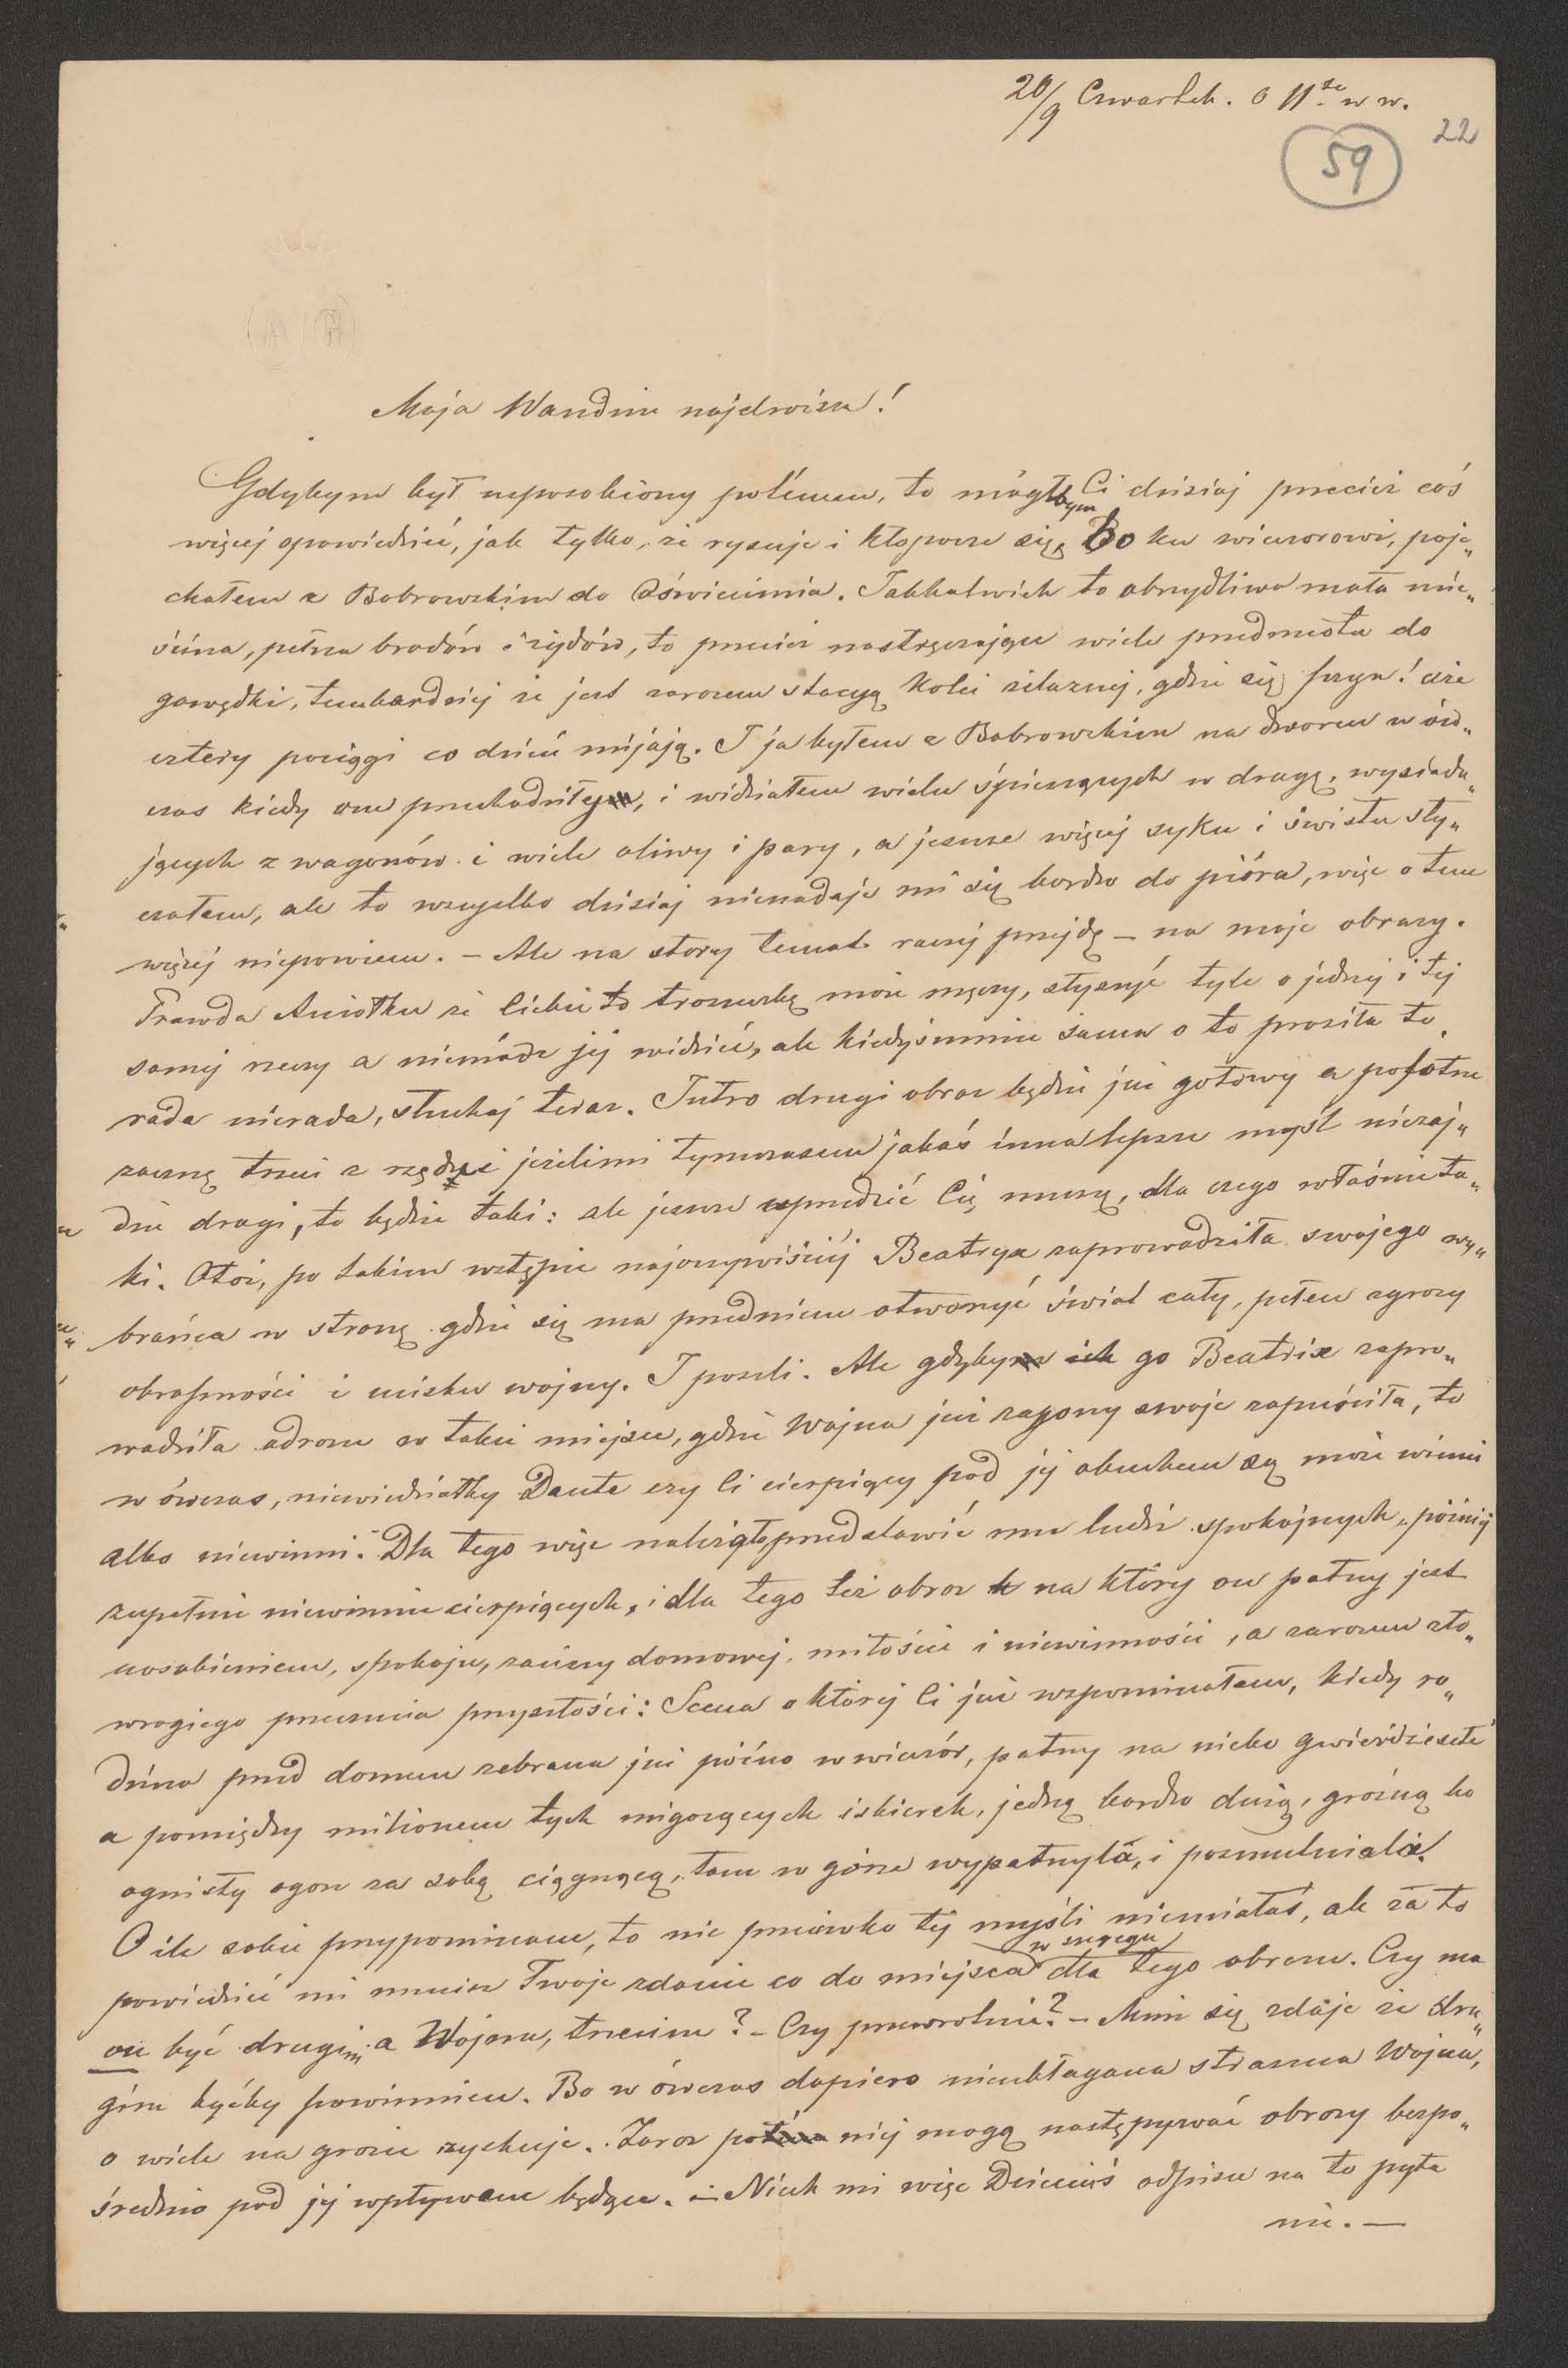 20/9 Czwartek. O 11tej w w.
22
59
Moja Wandziu najdroższa!
Gdybym był usposobiony potému, to mógłbym Ci dzisiaj przecież coś
więcej opowiedzieć, jak tylko, że rysuje i kłopocze się. Bo ku wieczorowi, poje„
chałem z Bobrowskim do Oświecimia. Jakkolwiek to obrzydliwa mała mie„
ścina, pełna brodów i żydów, to przecież nastręczająca wiele przedmiotu do
gawędki, tembardziej że jest zarazem stacyą kolei żelaznej, gdzie się proszę! aże
cztery pociągi co dzień mijają. I ja byłem z Bobrowskim na dworcu w ów„
czas kiedy one przechodziły, i widziałem wielu śpieszących w drogę, wysiada„
jących z wagonów i wiele oliwy i pary, a jeszcze więcej syku i świstu sły„
szałem, ale to wszystko dzisiaj nienadaje mi się bardzo do pióra, więc o tem
więcej niepowiem. – Ale na stary temat raczej przejdę – na moje obrazy.
Prawda Aniołku że Ciebie to troszeczkę może męczy, słyszyć tyle o jednej i tej
samej rzeczy a niemódz jej widzieć, ale kiedyś mnie sama o to prosiła to
rada nierada, słuchaj teraz. Jutro drugi obraz będzie już gotowy a pojutrze
zacznę trzeci z rzędu i jeżeli mi tymczasem jakaś inna lepsza myśl niezaj„
dzie drogi, to będzie taki: ale jeszcze uprzedzić Cię muszę, dla czego właśnie ta„
ki. Otóż, po takim wstępie najoczywiściej Beatryx zaprowadziła swojego wy„
brańca w stronę gdzie się ma przednim otworzyć świat cały, pełen zgrozy
okropności i ucisku wojny. I poszli. Ale gdyby go Beatrix zapro„
wadziła odrazu w takie miejsce, gdzie Wojna już zagony swoje zapuściła, to
w ówczas, niewiedziałby Dante czy Ci cierpiący pod jej obuchem są może winni
albo niewinni. Dla tego więc należało, przedstawić mu ludzi spokojnych, później
zupełnie niewinnie cierpiących, i dla tego też obraz na który on patrzy jest
uosobieniem, spokoju, zaciszy domowej, miłości i niewinności, a zarazem zło„
wrogiego przeczucia przyszłości: Scena o której Ci już wspominałem, kiedy ro„
dzina przed domem zebrana już późno w wieczór, patrzy na niebo gwieździste
a pomiędzy milionem tych migocących iskierek, jedną bardzo dużą, groźną bo
ognisty ogon za sobą ciągnącą, tam w górze wypatrzyła, i posmutniała.
O ile sobie przypominam, to nic przeciwko tej myśli niemiałaś, ale za to
powiedzieć mi musisz Twoje zdanie co do miejsca w szeregu dla tego obrazu. Czy ma
on być drugim a Wojna, trzecim? – Czy przewrotnie? – Mnie się zdaje że dru„
gim byćby powinien. Bo w ówczas dopiero nieubłagana straszna Wojna,
o wiele na grozie zyskuje. Zaraz po niej mogą następywać obrazy bezpo„
średnio pod jej wpływem będące. – Niech mi więc Dzieciuś odpisze na to pyta
nie. –